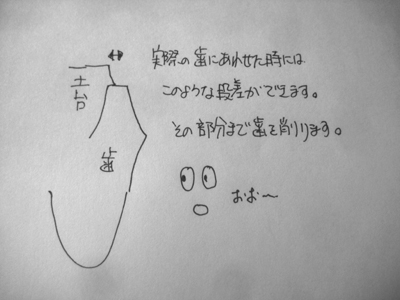 実際の歯にあわせた時には
このような段差ができます。
その部分まで歯を削ります。
土台
歯
おお〜